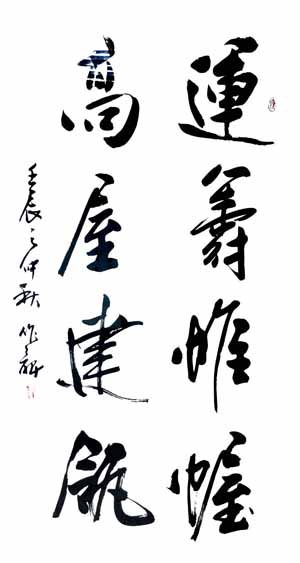 運籌帷幄
高屋建瓴
壬辰之仲秋